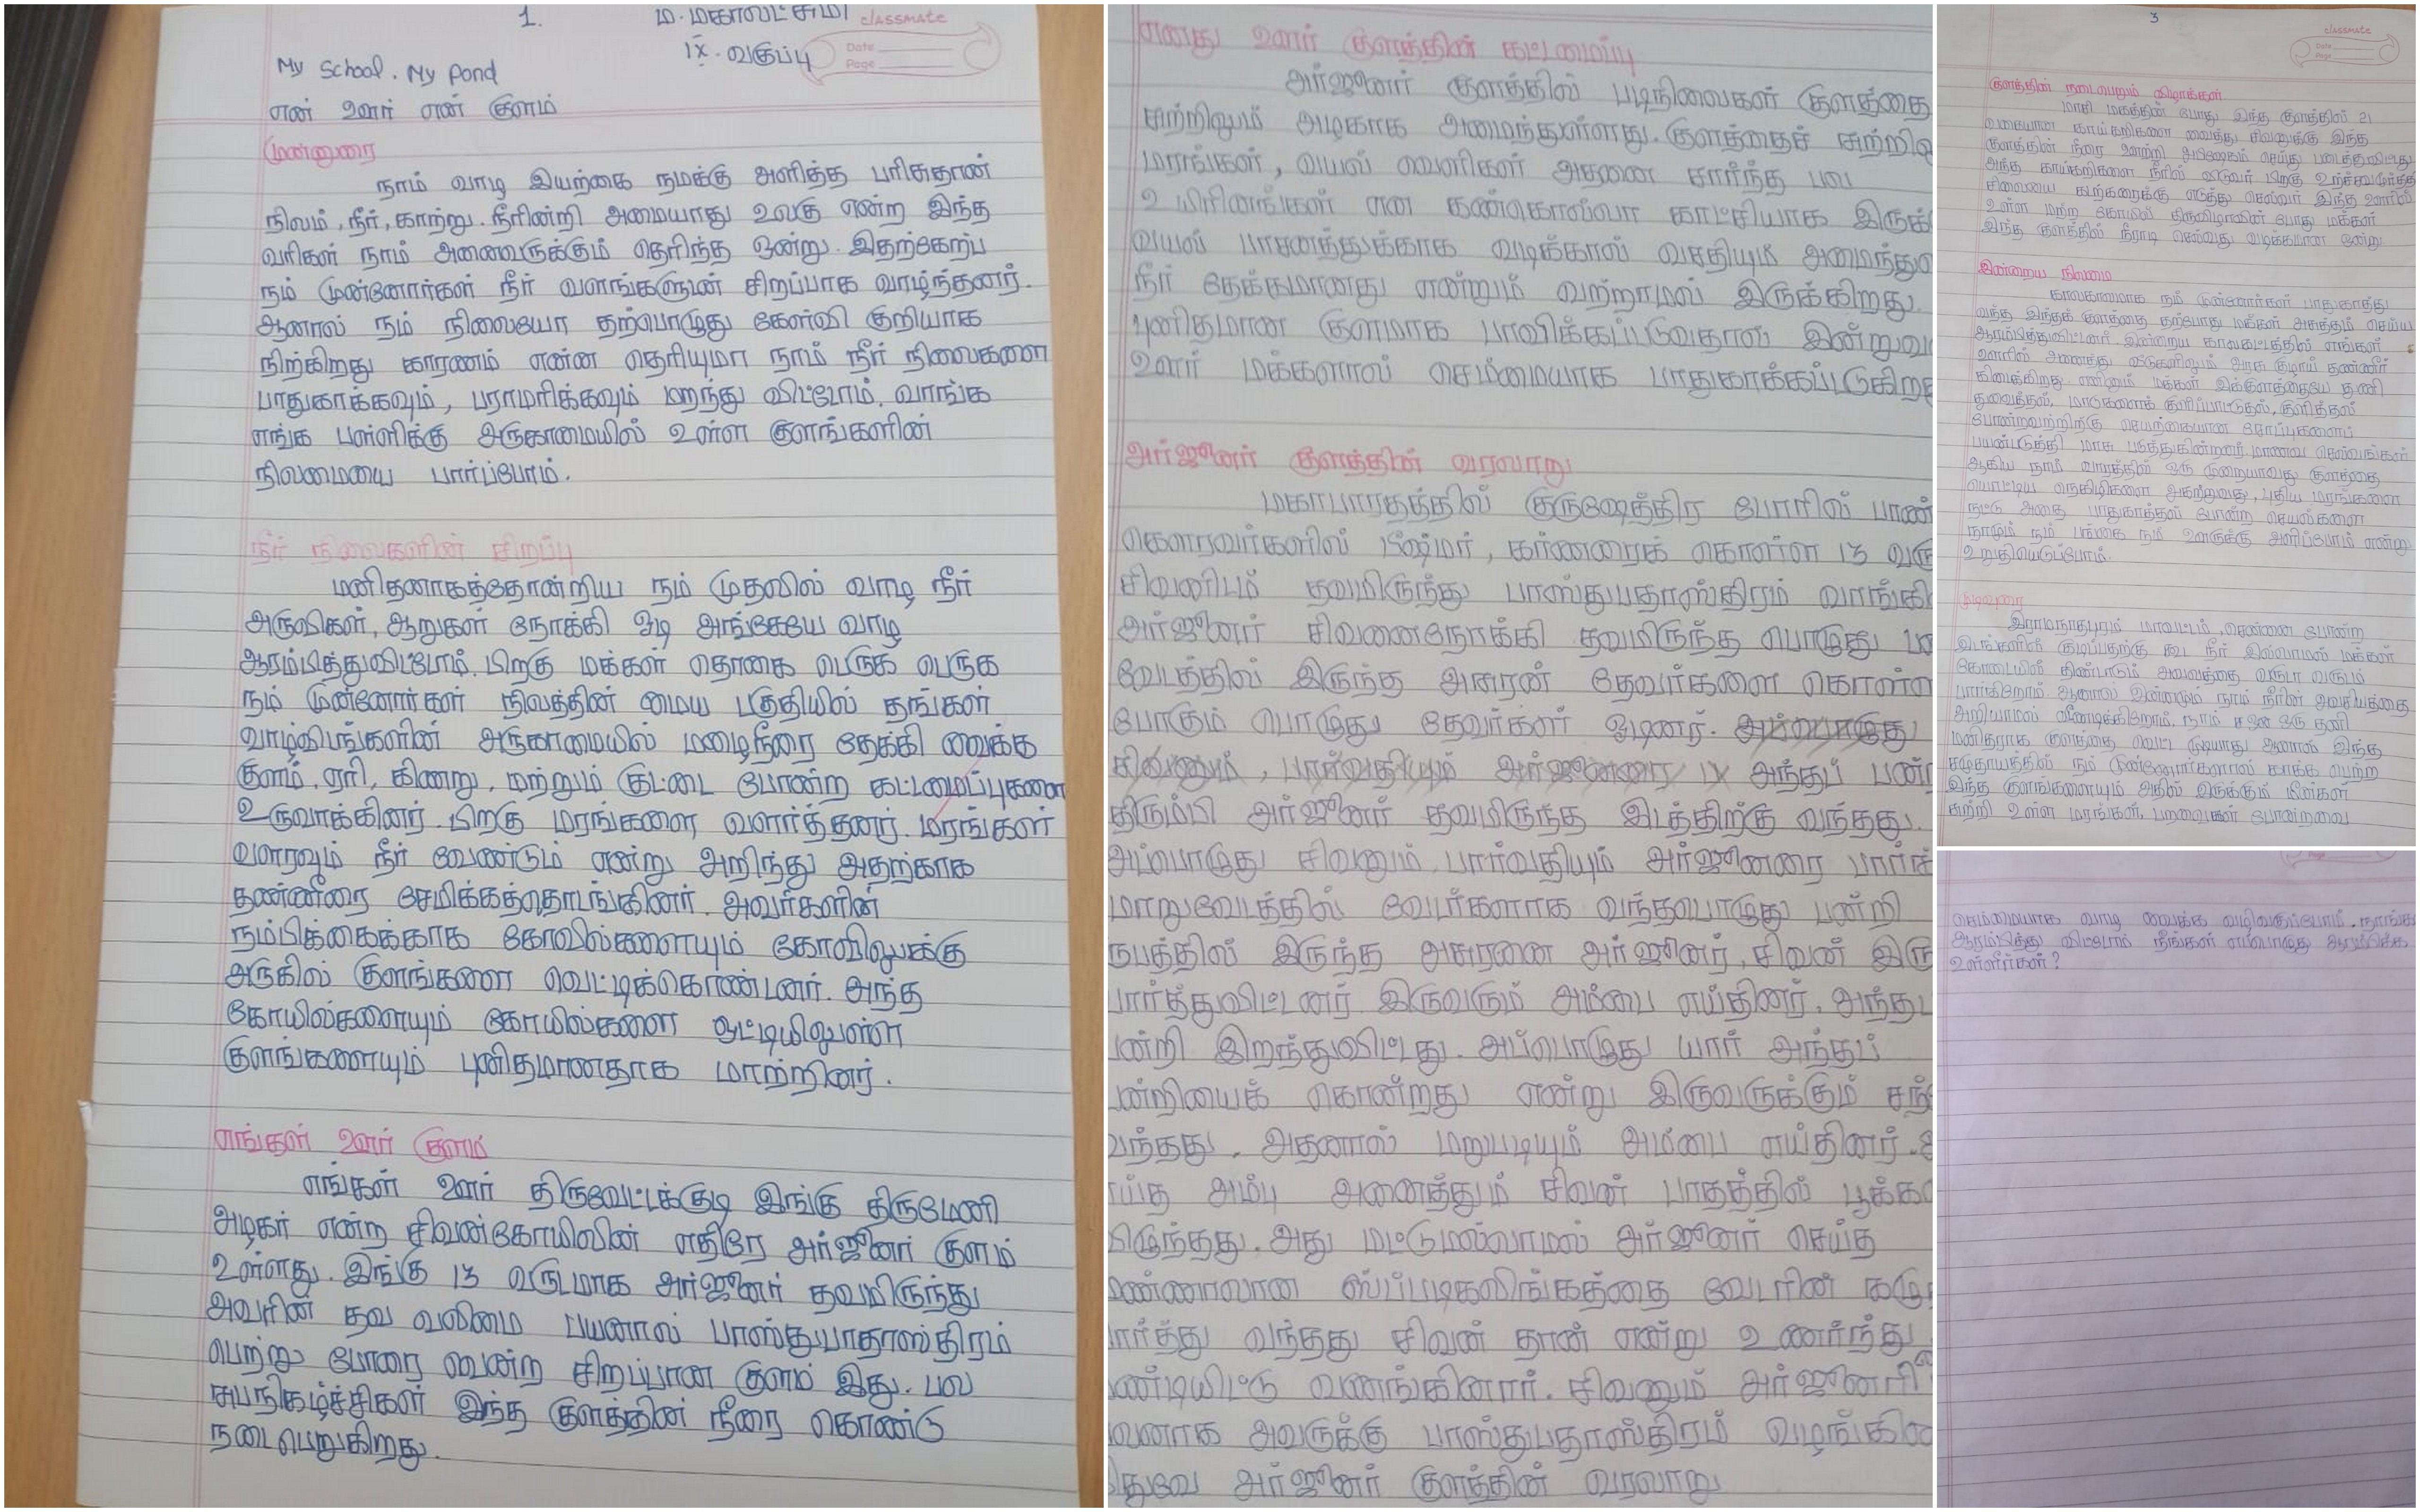 1.
ம. மகாலட்சுமி
classmate
IX - வகுப்பு
Date
Page
My School. My Pond
என் ஊர் என் குளம்
முன்னுரை
நாம் வாழ இயற்கை நமக்கு அளித்த பரிசுதான்
நிலம், நீர், காற்று. நீரின்றி அமையாது உலகு என்ற இந்த
வரிகள் நாம் அனைவருக்கும் தெரிந்த ஒன்று. இதற்கேற்ப
நம் முன்னோர்கள் நீர் வளங்களுடன் சிறப்பாக வாழ்ந்தனர்.
ஆனால் நம் நிலையோ தற்பொழுது கேள்வி குறியாக
நிற்கிறது காரணம் என்ன தெரியுமா நாம் நீர் நிலைகளை
பாதுகாக்கவும், பராமரிக்கவும் மறந்து விட்டோம். வாங்க
எங்க பள்ளிக்கு அருகாமையில் உள்ள குளங்களின்
நிலமையை பார்ப்போம்.
நீர் நிலைகளின் சிறப்பு
மனிதனாகத்தோன்றிய நம் முதலில் வாழ நீர்
அருவிகள், ஆறுகள் நோக்கி ஓடி அங்கேயே வாழ
ஆரம்பித்துவிட்டோம். பிறகு மக்கள் தொகை பெருக பெருக
நம் முன்னோர்கள் நிலத்தின் மைய பகுதியில் தங்கள்
வாழ்விடங்களின் அருகாமையில் மழைநீரை தேக்கி வைக்க
குளம், ஏரி, கிணறு, மற்றும் குட்டை போன்ற கட்டமைப்புகளை
உருவாக்கினர். பிறகு மரங்களை வளர்த்தனர். மரங்கள்
வளரவும் நீர் வேண்டும் என்று அறிந்து அதற்காக
தண்ணீரை சேமிக்கத்தொடங்கினர். அவர்களின்
நம்பிக்கைக்காக கோவில்களையும் கோவிலுக்கு
அருகில் குளங்களை வெட்டிக்கொண்டனர். அந்த
கோயில்களையும் கோயில்களை ஒட்டியிலுள்ள
குளங்களையும் புனிதமானதாக மாற்றினர்.
எங்கள் ஊர் குளம்
எங்கள் ஊர் திருவேட்டக்குடி இங்கு திருமேணி
அழகர் என்ற சிவன்கோயிலின் எதிரே அர்ஜூனர் குளம்
உள்ளது. இங்கு 13 வருடமாக அர்ஜூனர் தவமிருந்து
அவரின் தவ வலிமை பயனால் பாஸ்துபாதாஸ்திரம்
பெற்று போரை வென்ற சிறப்பான குளம் இது. பல
சுபநிகழ்ச்சிகள் இந்த குளத்தின் நீரை கொண்டு
நடைபெறுகிறது.
எனது ஊர் குளத்தின் கட்டமைப்பு
அர்ஜூனர் குளத்தில் படிநிலைகள் குளத்தை
சுற்றிலும் அழகாக அமைந்துள்ளது. குளத்தைச் சுற்றி
மரங்கள், வயல் வெளிகள் அதனை சார்ந்த பல
உயிரினங்கள் என கண்கொல்லா காட்சியாக இருக்
வயல் பாசனத்துக்காக வடிக்கால் வசதியும் அமைந்து
நீர் தேக்கமானது என்றும் வற்றாமல் இருக்கிறது.
புனிதமான குளமாக பாவிக்கப்படுவதால் இன்றுவ
ஊர் மக்களால் செம்மையாக பாதுகாக்கப்படுகிற
அர்ஜூனர் குளத்தின் வரலாறு
மகாபாரதத்தில் குருஷேத்திர போரில் பாண்
கௌரவர்களில் பீஷ்மர், கர்ணரைக் கொள்ள 13 வரு
சிவனிடம் தவமிருந்து பாஸ்துபதாஸ்திரம் வாங்கி
அர்ஜூனர் சிவனைநோக்கி தவமிருந்த பொழுது ப
வேடத்தில் இருந்த அசுரன் தேவர்களை கொள்ள
போகும் பொழுது தேவர்கள் ஓடினர். அப்பொழுது
சிவனும், பார்வதியும் அர்ஜூனரை அந்தப் பன்
திரும்பி அர்ஜூனர் தவமிருந்த இடத்திற்கு வந்தது.
அப்பொழுது சிவனும், பார்வதியும் அர்ஜூனரை பார்க்
மாறுவேடத்தில் வேடர்களாக வந்தபொழுது பன்றி
ரூபத்தில் இருந்த அசுரனை அர்ஜூனர், சிவன் இரு
பார்த்துவிட்டனர். இருவரும் அம்பை எய்தினர். அந்த
ன்றி இறந்துவிட்டது. அப்பொழுது யார் அந்தப்
ன்றியைக் கொன்றது என்று இருவருக்கும் சந்
வந்தது. அதனால் மறுபடியும் அம்பை எய்தினர்.
ய்த அம்பு அனைத்தும் சிவன் பாதத்தில் பூக்க
விழுந்தது. அது மட்டுமல்லாமல் அர்ஜூனர் செய்த
ண்ணாலான ஸ்ப்படிகலிங்கத்தை வேடரின் கழு
ார்த்து வந்தது சிவன் தான் என்று உணர்ந்து
ண்டியிட்டு வணங்கினார். சிவனும் அர்ஜூனரி
வனாக அவருக்கு பாஸ்துபதாஸ்திரம் வழங்கி
துவே அர்ஜூனர் குளத்தின் வரலாறு
3
classmate
Date
Page
குளத்தின் நடைபெறும் விழாக்கள்
மாசி மகத்தின் போது இந்த குளத்தில் 21
வகையான காய்கறிகளை வைத்து சிவனுக்கு இந்த
குளத்தின் நீரை ஊற்றி அபிஷேகம் செய்து படைத்துவிட்டு
அந்த காய்கறிகளை நீரில் விடுவர் பிறகு உற்ச்சவமூர்த்தி
சிலையை கடற்கரைக்கு எடுத்து செல்வர் இந்த ஊரில்
உள்ள மற்ற கோயில் திருவிழாவின் போது மக்கள்
இந்த குளத்தில் நீராடி செல்வது வழக்கமான ஒன்று
இன்றைய நிலமை
காலகாலமாக நம் முன்னோர்கள் பாதுகாத்து
வந்த இந்தக் குளத்தை தற்போது மக்கள் அசுத்தம் செய்ய
ஆரம்பித்துவிட்டனர். இன்றைய காலகட்டத்தில் எங்கள்
ஊரில் அனைத்து வீடுகளிலும் அரசு குழாய் தண்ணீர்
கிடைக்கிறது. எனினும் மக்கள் இக்குளத்தையே துணி
துவைத்தல், மாடுகளைக் குளிப்பாட்டுதல், குளித்தல்
போன்றவற்றிற்கு செயற்கையான சோப்புகளைப்
பயன்படுத்தி மாசு படுத்துகின்றனர். மாணவ செல்வங்கள்
ஆகிய நாம் வாரத்தில் ஒரு முறையாவது குளத்தை
யொட்டிய நெகிழிகளை அகற்றுவது, புதிய மரங்களை
நட்டு அதை பாதுகாத்தல் போன்ற செயல்களை
நாளும் நம் பங்கை நம் ஊருக்கு அளிப்போம் என்று
உறுதியெடுப்போம்.
முடிவுரை
இராமநாதபுரம் மாவட்டம், சென்னை போன்ற
இடங்களில் குடிப்பதற்கு கூட நீர் இல்லாமல் மக்கள்
கோடையில் திண்டாடும் அவலத்தை வருடா வருடம்
பார்க்கிறோம். ஆனால் இன்னமும் நாம் நீரின் அவசியத்தை
அறியாமல் வீணடிக்கிறோம். நாம் ஒரு தனி
மனிதராக குளத்தை வெட்ட முடியாது ஆனால் இந்த
சமுதாயத்தில் நம் முன்னோர்களால் காக்க பெற்ற
இந்த குளங்களையும் அதில் இருக்கும் மீன்கள்
சுற்றி உள்ள மரங்கள், பறவைகள் போன்றவை
செம்மையாக வாழ வைக்க வழிவகுப்போம். நாங்க
ஆரம்பித்து விட்டோம் நீங்கள் எப்பொழுது ஆரம்பிக்க
உள்ளீர்கள்?